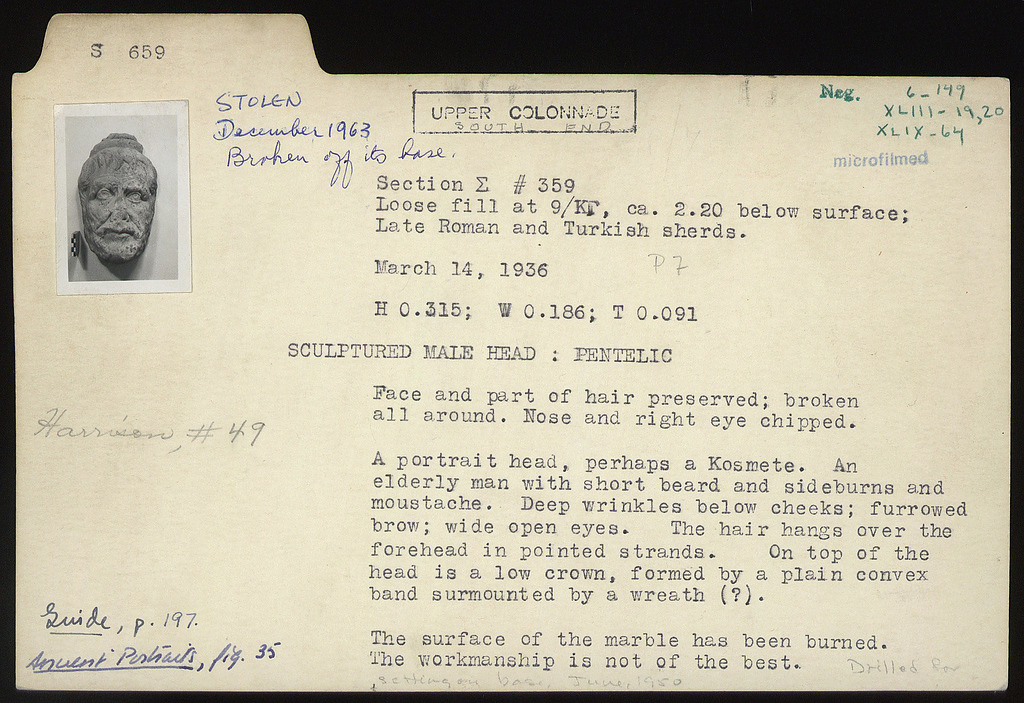 S 659
STOLEN
December 1963
Broken off its base.
UPPER COLONNADE
SOUTH END
Neg. 6-149
XLIII-19,20
XLIX-64
microfilmed
Section Σ # 359
Loose fill at 9/ΚΓ, ca. 2.20 below surface;
Late Roman and Turkish sherds.
March 14, 1936
P 7
H 0.315; W 0.186; T 0.091
SCULPTURED MALE HEAD : PENTELIC
Face and part of hair preserved; broken
all around. Nose and right eye chipped.
Harrison, #49
A portrait head, perhaps a Kosmete. An
elderly man with short beard and sideburns and
moustache. Deep wrinkles below cheeks; furrowed
brow; wide open eyes. The hair hangs over the
forehead in pointed strands. On top of the
head is a low crown, formed by a plain convex
band surmounted by a wreath (?).
Guide, p. 197.
Ancient Portraits, fig. 35
The surface of the marble has been burned.
The workmanship is not of the best. Drilled for
setting on base, June, 1950